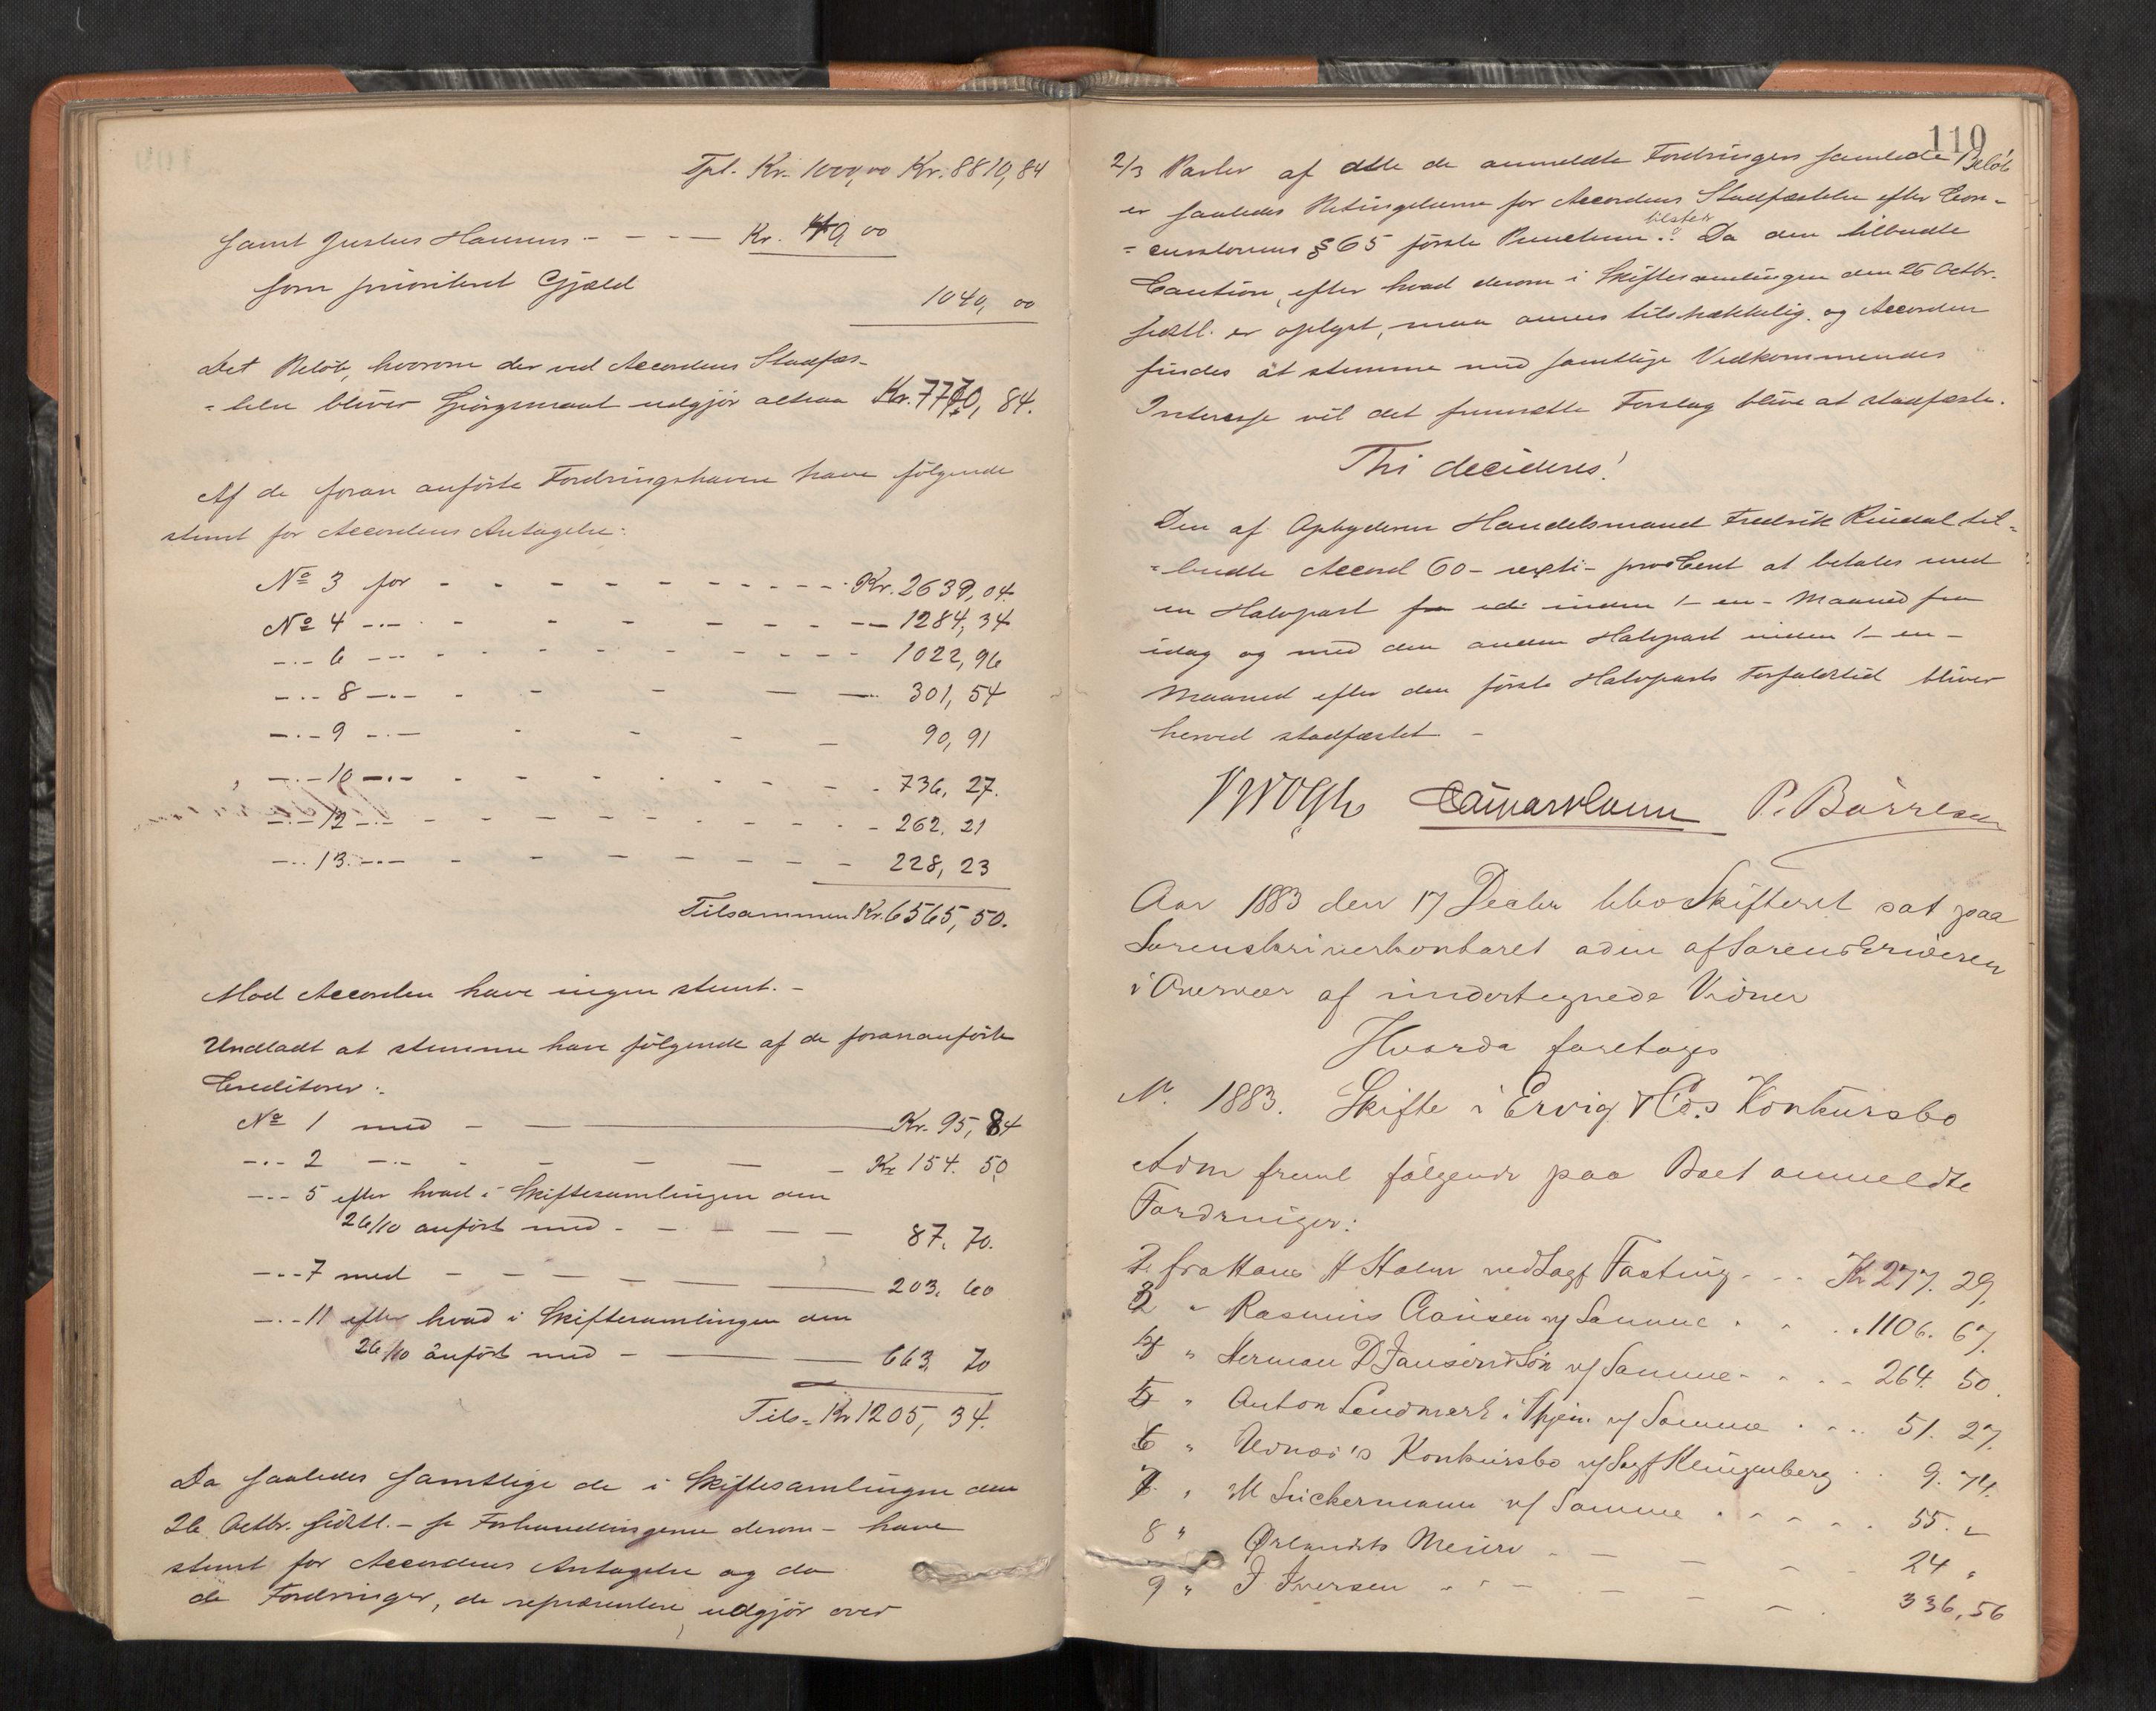 Tpt. Kr. 1000,00 Kr. 8810,84
samt Justus Hansens - - - - Kr. 40 00
som prioriteret Gjæld
1040,00
Det Beløb, hvorom der ved Accordens Stadfæs-
=telse bliver Spörgsmaal udgjör altsaa Kr. 7770,84.
Af de foran anförte Fordringshavere have fölgende
stemt for Accordens Antagelse:
No 3 for - - - - - - - - - - Kr. 2639,04.
No 4 -.- - - - - - - - 1284,34
-.- 6 -.- - - - - - - - 1022,96
-.- 8 -.- - - - - - 301,54
-.- 9 -.- - - - - 90,91
-.- 10 -.- - - - - - - - 736,27.
-.- 12 -.- - - - - - - - - 262.21
-.- 13 -.- - - - - - - - 228,23
Tilsammen Kr. 6565,50.
Mod Accorden have ingen stemt. -
Undladt at stemme have fölgende af de forananförte
Creditorer:
No 1 med - - Kr. 95,84
-.- 2 -.- - - - - - Kr 154. 50,
-.- 5 efter hvad i Skiftesamlingen den
26/10 anfört med - - - - - 87. 70.
-.- 7 med - - - - - 203. 60
-.- 11 efter hvad i Skiftesamlingen den
26/10 anfört med - 663. 70
Tils. Kr 1205, 34.
Da saaledes samtlige de i Skiftesamlingen den
26 Octbr. sidstl. - se Forhandlingerne derom - have
stemt for Accordens Antagelse og da
de Fordringer, de repræsentere, udgjör over
110
2/3 Parter af alle de anmeldte Fordringers samlede Belöb
er saaledes Betingelserne for Accordens Stadfæstelse efter Con-
tilstede
=curslovens § 65 förste Punctum. Da den tilbudte
Caution, efter hvad derom i Skiftesamlingen den 26 Octbr.
sidstl. er oplyst, maa anses tilstrækkelig, og Accorden
findes at stemme med samtlige Vedkommendes
Interesse vil det fremsatte Forslag blive at stadfæste.
Thi decideres!
Den af Opbyderen Handelsmand Fredrik Rindal til-
=budte Accord 60 - sexti - proCent at betales med
en Halvpart fra id inden 1 - en - Maaned fra
idag og med den anden Halvpart inden 1 - en -
Maaned efter den förste Halvparts Forfaldstid bliver
herved stadfæstet -
P. Börresen
Aar 1883 den 17 Decbr blev Skifteret sat paa
Sorenskriverkontoret adm af Sorenskriveren
i Overvær af undertegnede Vidner
Hvorda foretoges
No. 1883. Skifte i Ervig & Co.s Konkursbo
Adm freml følgende paa Boet anmeldte
Fordringer:
2. fra Hans H Holm ved Sagf Fasting - - . Kr 277. 29.
3 " Rasmus Hansen v/ Samme . . . 1106. 67.
4 " Herman D Jansen & Søn v/ Samme - . . - 264. 50.
5 " Anton Landmark i Thjem v/ Samme . . . . 51. 27.
6 " Konkursbo v/ Sagf Klingenberg . . 9. 74.
7 " M Suckermann v/ Samme . . . . . 55. "
8 " Ørlandets Meieri - - - - - 24 "
9 " J Iversen - - - - - . 336,56